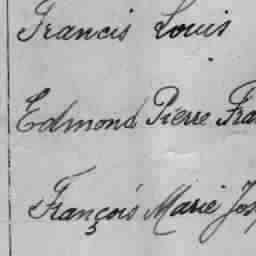 Francis Louis
Edmond Pierre Fra
François Marie Jos